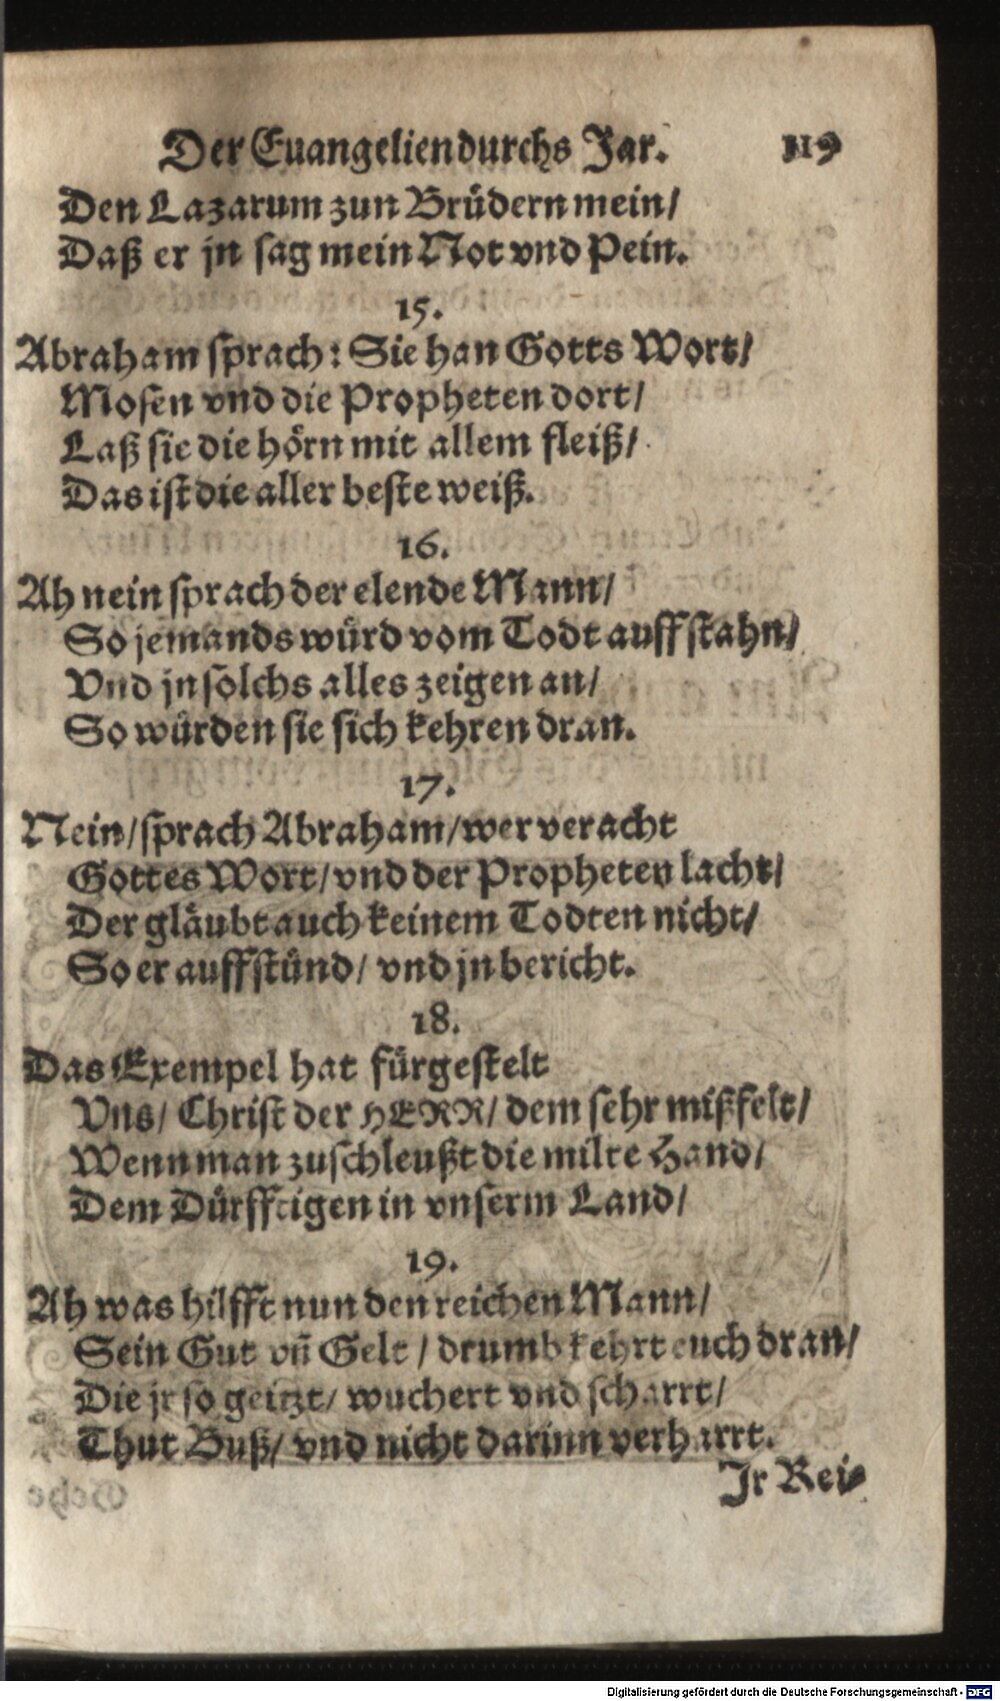 Der Euangelien durchs Jar. 119
Den Lazarum zun Brüdern mein/
Daß er jn sag mein Not vnd Pein.
15.
Abraham sprach: Sie han Gotts Wort/
Mosen vnd die Propheten dort/
Laß sie die hörn mit allem fleiß/
Das ist die aller beste weiß.
16.
Ah nein sprach der elende Mann/
So jemands würd vom Todt auffstahn/
Vnd jn solchs alles zeigen an/
So würden sie sich kehren dran.
17.
Nein/ sprach Abraham/ wer veracht
Gottes Wort/ vnd der Propheten lacht/
Der gläubt auch keinem Todten nicht/
So er auffstünd/ vnd jn bericht.
18.
Das Exempel hat fürgestelt
Vns/ Christ der HERR/ dem sehr mißfelt/
Wenn man zuschleußt die milte Hand/
Dem Dürfftigen in vnserm Land/
19.
Ah was hilfft nun den reichen Mann/
Sein Gut vn̄ Gelt/ drumb kehrt euch dran/
Die jr so geitzt/ wuchert vnd scharrt/
Thut Buß/ vnd nicht darinn verharrt.
Jr Rei-
Digitalisierung gefördert durch die Deutsche Forschungsgemeinschaft - DFG